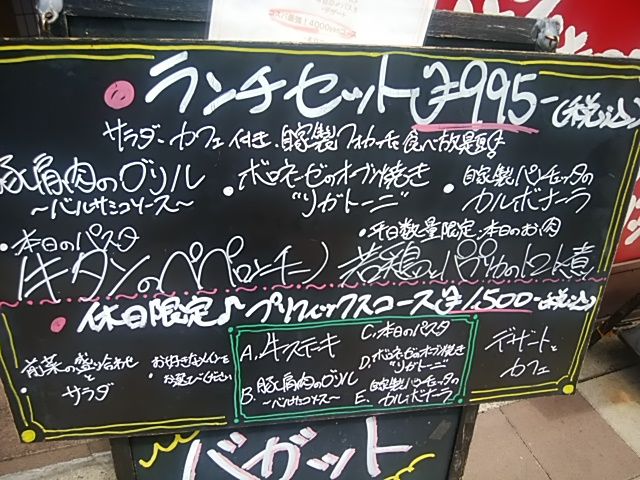 ランチセット ¥995-(税込)
サラダ・カフェ付き、自家製フォカッチャ食べ放題!
豚肩肉のグリル
〜バルサミコソース〜
・ボロネーゼのオーブン焼き
"リガトーニ"
・自家製パンチェッタの
カルボナーラ
・本日のパスタ
牛タンのペペロンチーノ
・平日数量限定・本日のお肉
若鶏とパプリカのトマト煮
休日限定♪プリフィックスコース¥1,500-(税込)
前菜の盛り合わせ
と
サラダ
お好きなメインを
お選びください
A. 牛ステーキ
B. 豚肩肉のグリル
〜バルサミコソース〜
C. 本日のパスタ
D. ボロネーゼのオーブン焼き
"リガトーニ"
E. 自家製パンチェッタの
カルボナーラ
デザートと
カフェ
バガット